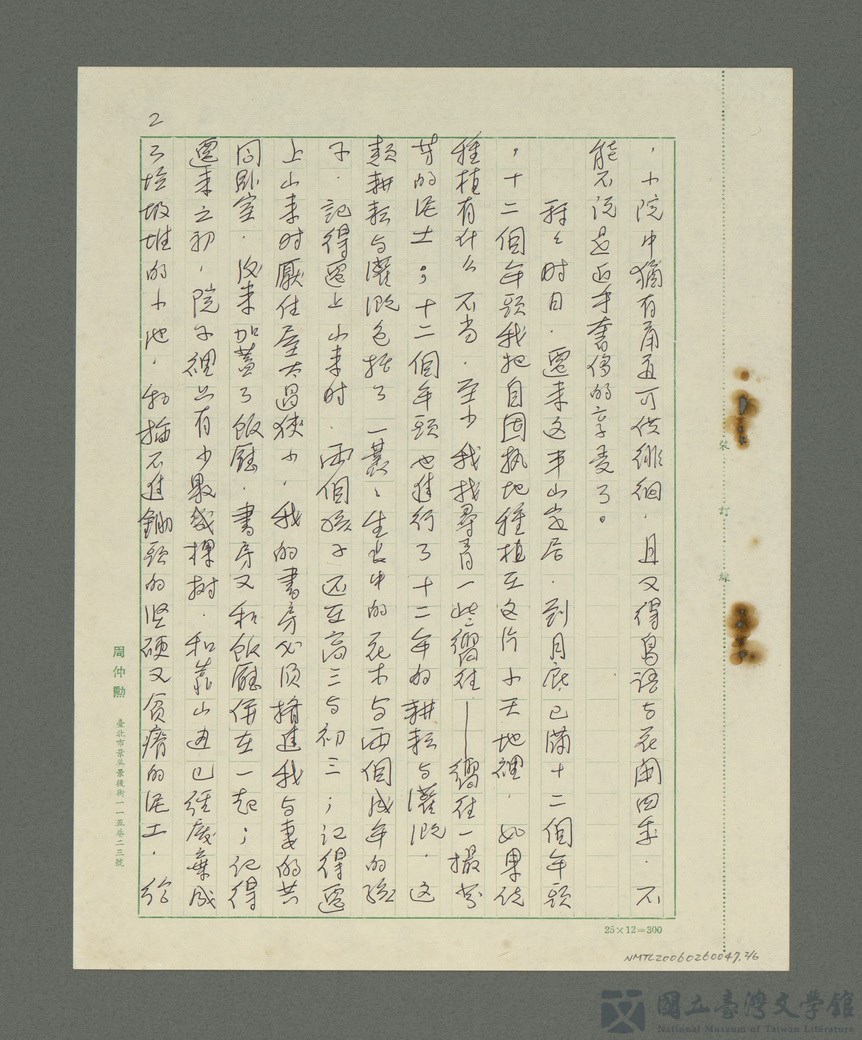 2
，小院中猶有甬道可供徘徊，且又得鳥語与花開四季，不
能不說是近乎奢侈的享受了。
種々時日，遷來这半山家居，到月底已滿十二個年頭
，十二個年頭我把自固執地種植在这片小天地裡，如果說
種植有什么不当，至少我找尋着一些嚮往——嚮往一撮芬
芳的泥土；十二個年頭也進行了十二年的耕耘与灌溉，这
類耕耘与灌溉包括了一叢叢生长中的花木与兩個成年的孩
子，記得遷上山來时，兩個孩子还在高三与初三；记得遷
上山來时厭住屋太過狹小，我的書房必須擠進我与妻的共
同臥室，后來加蓋了飯廳，書房又和飯廳併在一起；记得
遷來之初，院子裡只有少數幾棵樹，和靠山边已經廢棄成
了垃圾堆的小池，和掘不進鋤頭的坚硬又貧瘠的泥土，給
裝 訂 線
25×12=300
周仲勳
臺北市景美景後街一一五巷二三號
NMTL20060260047.2/6
國立臺灣文學館
National Museum of Taiwan Literature